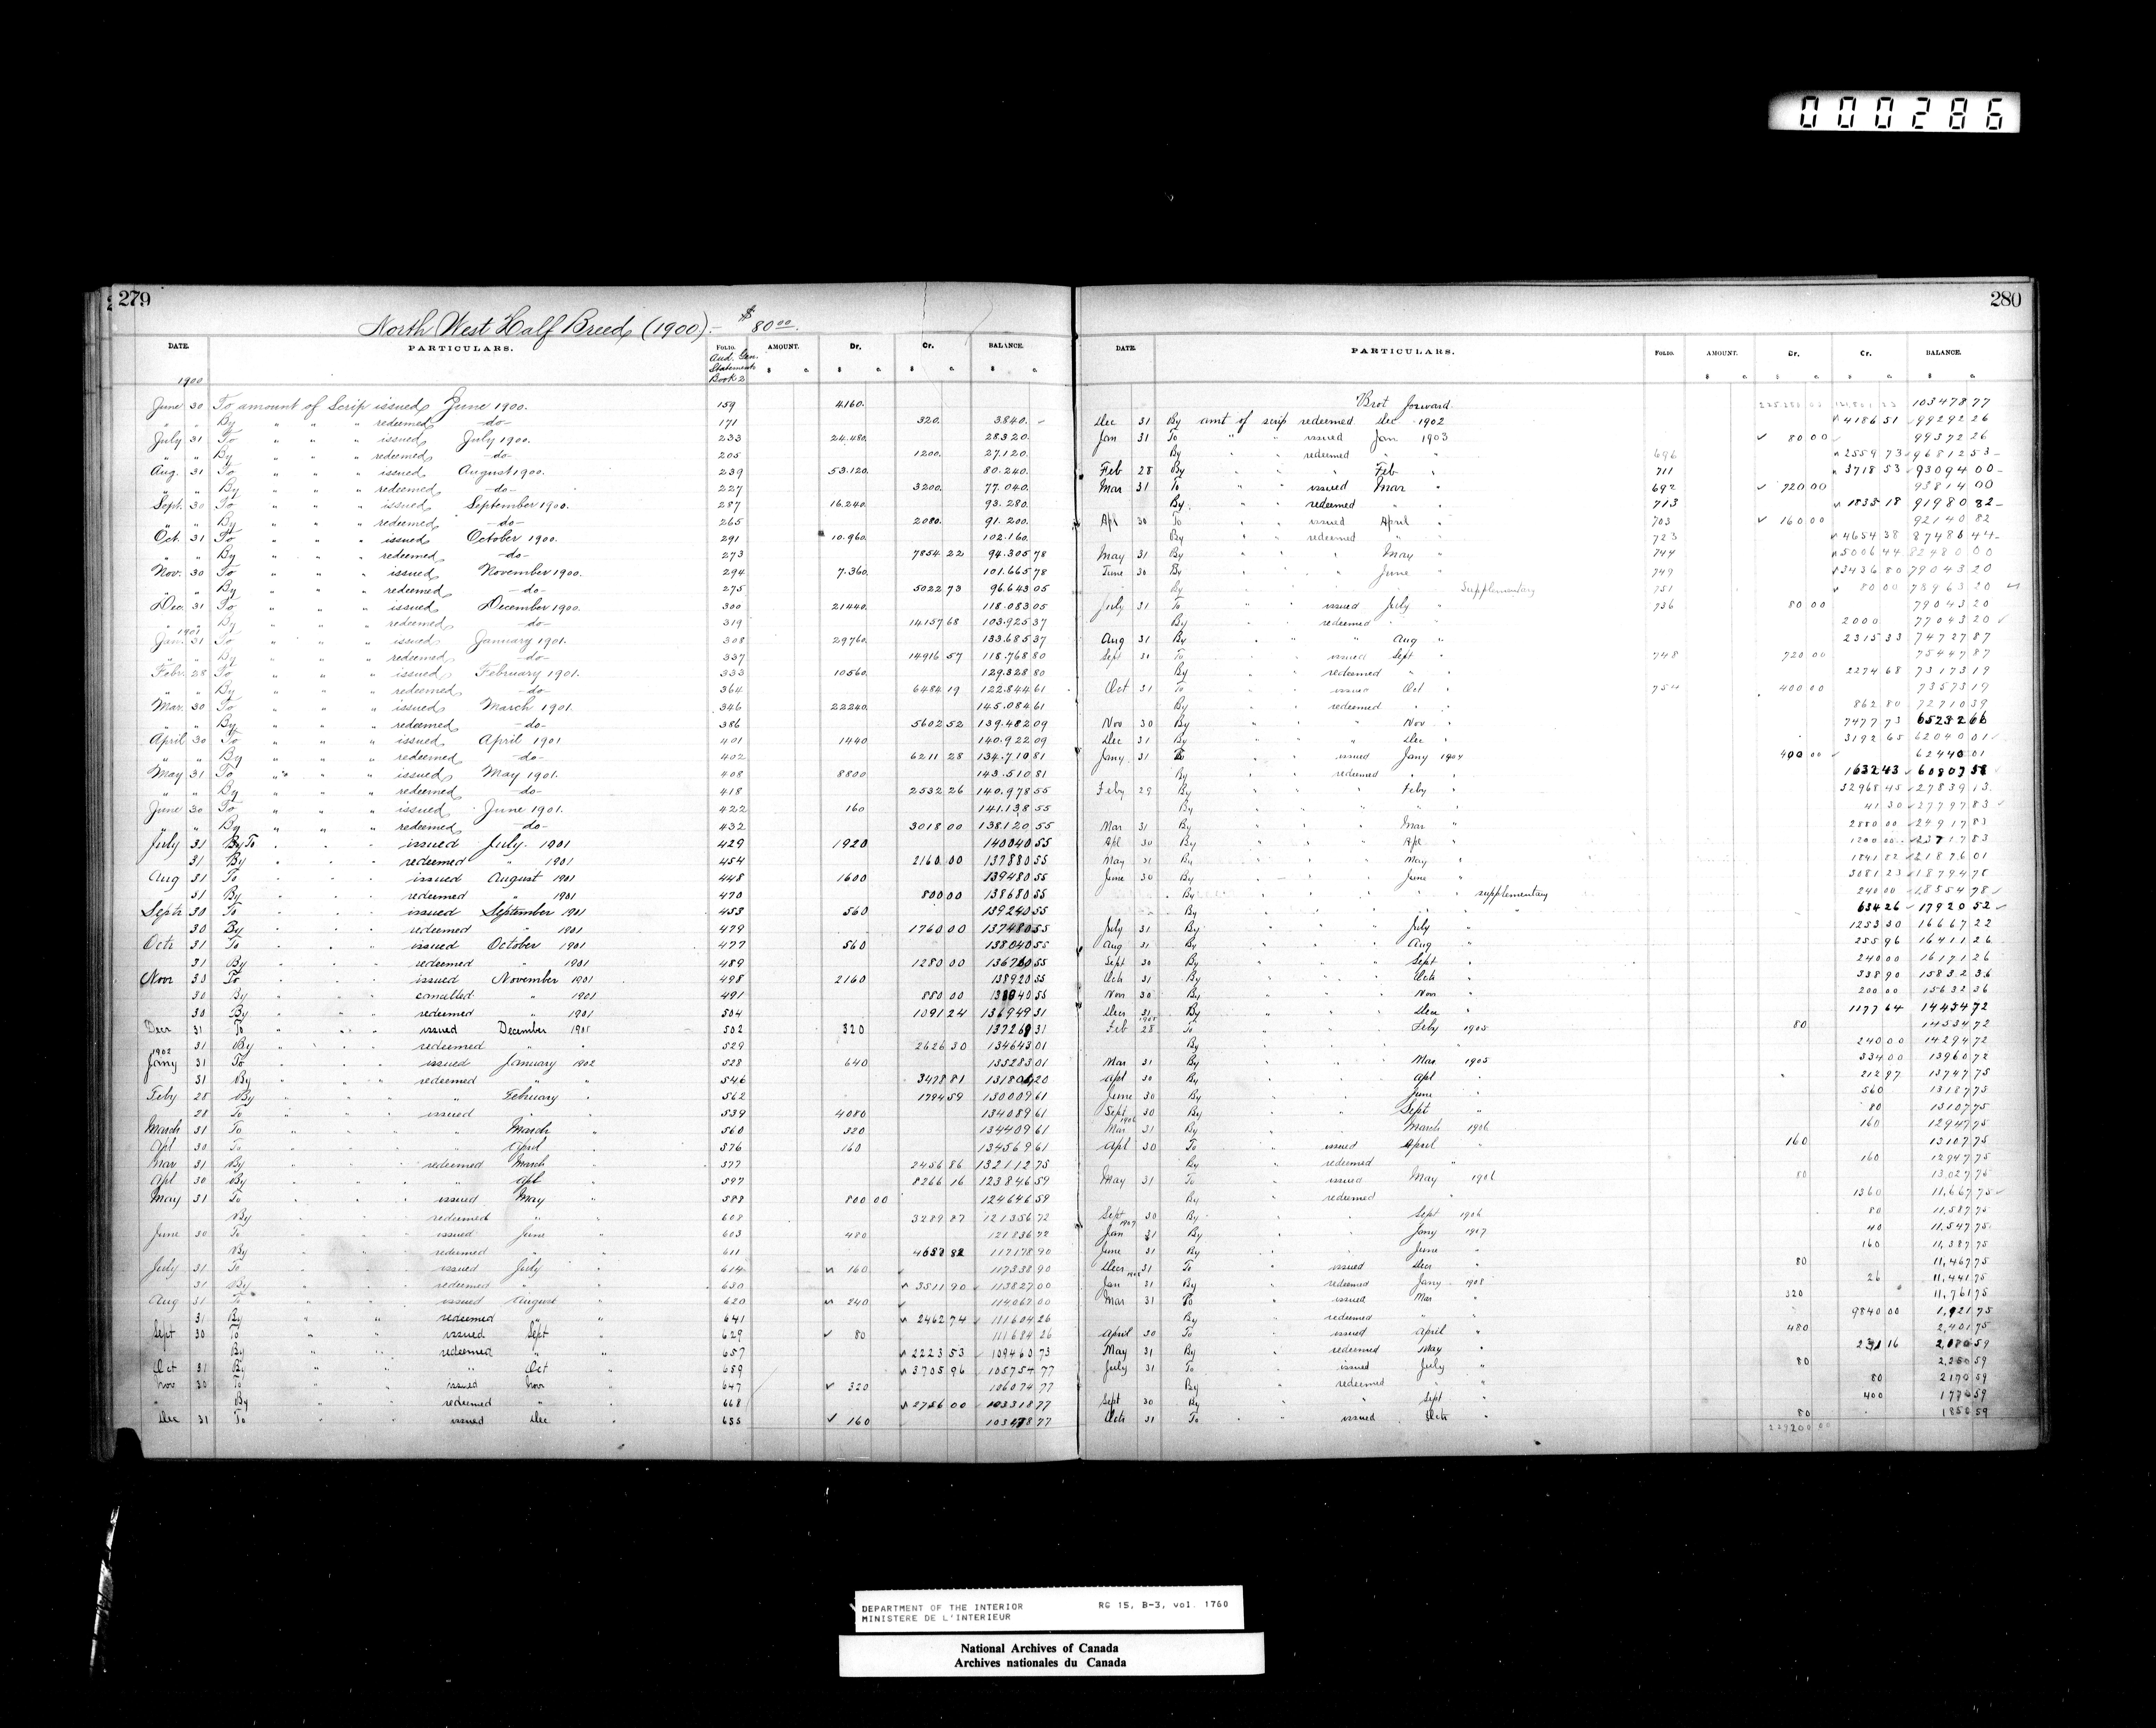 000286
279
North West Half Breeds (1900).- $80.00.
DATE. PARTICULARS. FOLIO. AMOUNT. Dr. Cr. BALANCE.
Aud. Gen. Statements Book 2
$ c. $ c. $ c. $ c.
1900
June 30 To amount of Scrip issued June 1900. 159 4.160.
" " By " " " redeemed -do- 171 320. 3.840.
July 31 To " " " issued July 1900. 233 24.480. 28.320.
" " By " " " redeemed -do- 205 1200. 27.120.
Aug. 31 To " " " issued August 1900. 239 53.120. 80.240.
" " By " " " redeemed -do- 227 3200. 77.040.
Sept. 30 To " " " issued September 1900. 287 16.240. 93.280.
" " By " " " redeemed -do- 265 2080. 91.200.
Oct. 31 To " " " issued October 1900. 291 10.960. 102.160.
" " By " " " redeemed -do- 273 7854.22 94.305 78
Nov. 30 To " " " issued November 1900. 294 7.360. 101.665 78
" " By " " " redeemed -do- 275 5022 73 96.643 05
Dec. 31 To " " " issued December 1900. 300 21440. 118.083 05
" " By " " " redeemed -do- 319 14157 68 103.925 37
1901
Jan. 31 To " " " issued January 1901. 308 29760. 133.685 37
" " By " " " redeemed -do- 337 14916 57 118.768 80
Febr. 28 To " " " issued February 1901. 333 10560. 129.328 80
" " By " " " redeemed -do- 364 6484 19 122.844 61
Mar. 30 To " " " issued March 1901. 346 22240. 145.084 61
" " By " " " redeemed -do- 386 5602 52 139.482 09
April 30 To " " " issued April 1901 401 1440 140.922 09
" " By " " " redeemed -do- 402 6211 28 134.710 81
May 31 To " " " issued May 1901. 408 8800 143.510 81
" " By " " " redeemed -do- 418 2532 26 140.978 55
June 30 To " " " issued June 1901. 422 160 141.138 55
" " By " " " redeemed -do- 432 3018 00 138.120 55
July 31 By To " " " issued July. 1901 429 1920 140040 55
31 By " " " redeemed " 1901 454 2160 00 137880 55
Aug 31 To " " " issued August 1901 448 1600 139480 55
31 By " " " redeemed " 1901 470 800 00 138680 55
Septr 30 To " " " issued September 1901 453 560 139240 55
30 By " " " redeemed " 1901 479 1760 00 137480 55
Octr 31 To " " " issued October 1901 477 560 138040 55
31 By " " " redeemed " 1901 489 1280 00 136760 55
Novr 30 To " " " issued November 1901 498 2160 138920 55
30 By " " " cancelled " 1901 491 880 00 138040 55
30 By " " " redeemed " 1901 504 1091 24 136949 31
Decr 31 To " " " issued December 1901 502 320 137269 31
31 By " " " redeemed " " 529 2626 30 134643 01
1902
Jany 31 To " " " issued January 1902 528 640 135283 01
31 By " " " redeemed " " 546 3478 81 131804 20
Feby 28 By " " " " February " 562 1794 59 130009 61
28 To " " " issued " " 539 4080 134089 61
March 31 To " " " " March " 560 320 134409 61
Apl 30 To " " " " April " 576 160 134569 61
Mar 31 By " " " redeemed March " 577 2456 86 132112 75
Apl 30 By " " " " Apl " 597 8266 16 123846 59
May 31 To " " " issued May " 588 800 00 124646 59
By " " " redeemed " " 608 3289 87 121356 72
June 30 To " " " issued June " 603 480 121836 72
By " " " redeemed " " 611 4657 82 117178 90
July 31 To " " " issued July " 614 160 117338 90
31 By " " " redeemed " " 630 3511 90 113827 00
Aug 31 To " " " issued August " 620 240 114067 00
31 By " " redeemed " " 641 2462 74 111604 26
Sept 30 To " " issued Sept " 629 80 111684 26
By " " redeemed " " 657 2223 53 109460 73
Oct 31 By " " " Oct " 659 3705 96 105754 77
Nov 30 To " " issued Nov " 647 320 106074 77
" By " " redeemed " " 668 2756 00 103318 77
Dec 31 To " " issued Dec " 655 160 103478 77
280
DATE. PARTICULARS. FOLIO. AMOUNT. Dr. Cr. BALANCE.
$ c. $ c. $ c. $ c.
Brot forward 103478 77
Dec 31 By amt of scrip redeemed Dec 1902 4186 51 99292 26
Jan 31 To " " issued Jan 1903 80 00 99372 26
By " " redeemed " " 696 2559 73 96812 53
Feb 28 By " " " Feb " 711 3718 53 93094 00
Mar 31 To " " issued Mar " 692 720 00 93814 00
By " " redeemed " " 713 1833 18 91980 82
Apl 30 To " " issued April " 703 160 00 92140 82
By " " redeemed " " 723 4654 38 87486 44
May 31 By " " " May " 744 5006 44 82480 00
June 30 By " " " June " 749 3436 80 79043 20
By Supplementary 751 80 00 78963 20
July 31 To " " issued July " 736 80 00 79043 20
By " " redeemed " " 2000 77043 20
Aug 31 By " " " Aug " 2315 33 74727 87
Sept 31 To " issued Sept " 748 720 00 75447 87
By " redeemed " " 2274 68 73173 19
Oct 31 To " issued Oct " 754 400 00 73573 19
By " redeemed " " 862 80 72710 39
Nov 30 By " " Nov " 7477 73 65232 66
Dec 31 By " " Dec " 3192 65 62040 01
Jany 31 To " issued Jany 1904 400 00 62440 01
By " redeemed " " 1632 43 60807 58
Feby 29 By " " Feby " 32968 45 27839 13
By " " " " 41 30 27797 83
Mar 31 By " " Mar " 2880 00 24917 83
Apl 30 By " " Apl " 1200 00 23717 83
May 31 By " " May " 1841 82 21876 01
June 30 By " " June " 3081 23 18794 78
By " " supplementary 240 00 18554 78
By " 634 26 17920 52
July 31 By " " July " 1253 30 16667 22
Aug 31 By " " Aug " 255 96 16411 26
Sept 30 By " " Sept " 240 00 16171 26
Octr 31 By " " Octr " 338 90 15832 36
Nov 30 By " " Nov " 200 00 15632 36
Decr 31 By " " Decr " 1177 64 14454 72
1905
Feb 28 To " " Feby 1905 80 14534 72
By " " 240 00 14294 72
Mar 31 By " " Mar 1905 334 00 13960 72
Apl 30 By " " Apl " 212 97 13747 75
June 30 By " " June " 560 13187 75
Sept 30 By " " Sept " 80 13107 75
1906
Mar 31 By " " March 1906 160 12947 75
Apl 30 To " issued April " 160 13107 75
By " redeemed " 160 12947 75
May 31 To " issued May 1906 80 13027 75
By " redeemed " 1360 11,667 75
Sept 30 By " " Sept 1906 80 11,587 75
1907
Jan 31 By " " Jany 1907 40 11,547 75
June 31 By " " June " 160 11,387 75
Decr 31 To " issued Decr " 80 11,467 75
1908
Jan 31 By " redeemed Jany 1908 26 11,441 75
Mar 31 To " issued Mar " 320 11,761 75
By " redeemed " " 9840 00 1,921 75
April 30 To " issued April " 480 2,401 75
May 31 By " redeemed May " 231 16 2,170 59
July 31 To " issued July " 80 2,250 59
By " redeemed " " 80 2170 59
Sept 30 By " " Sept " 400 1770 59
Octr 31 To " issued Octr " 80 1850 59
229200 00
DEPARTMENT OF THE INTERIOR RG 15, B-3, vol. 1760
MINISTERE DE L'INTERIEUR
National Archives of Canada
Archives nationales du Canada